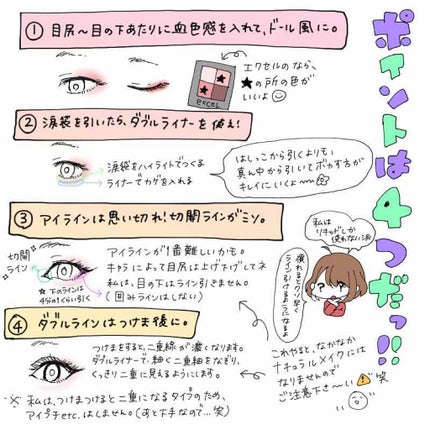 ポイントは4つだっ!!
① 目尻〜目の下あたりに血色感を入れて、ドール風に。
エクセルのなら、
★の所の色が
いいよ
excel
② 涙袋を引いたら、ダブルライナーを使え!
涙袋をハイライトでつくる
ライナーでカゲを入れる
はしっこから引くよりも、
真ん中から引いてボカす方が
キレイにいくよ〜
③ アイラインは思い切れ!切開ラインがミソ。
切開
ライン
★下のラインは
4分の1くらい引く
アイラインが1番難しいかも。
キャラによって目尻は上げ下げしてネ
私は、目の下はライン引きません。
(囲みラインはしない)
私は
リキッドしか
使わない派
慣れるとクソ早く
ライン引けるようになるよ
④ ダブルラインはつけま後に。
つけまをすると、二重線が濃くなります。
ダブルライナーで、細く二重軸をなぞり、
くっきり二重に見えるようにします。
※ 私は、つけまつけると二重になるタイプのため、
アイプチetc.はしません。(あと下手なので…笑)
これやると、なかなか
ナチュラルメイクには
なりませんので
ご注意下さ〜い 笑